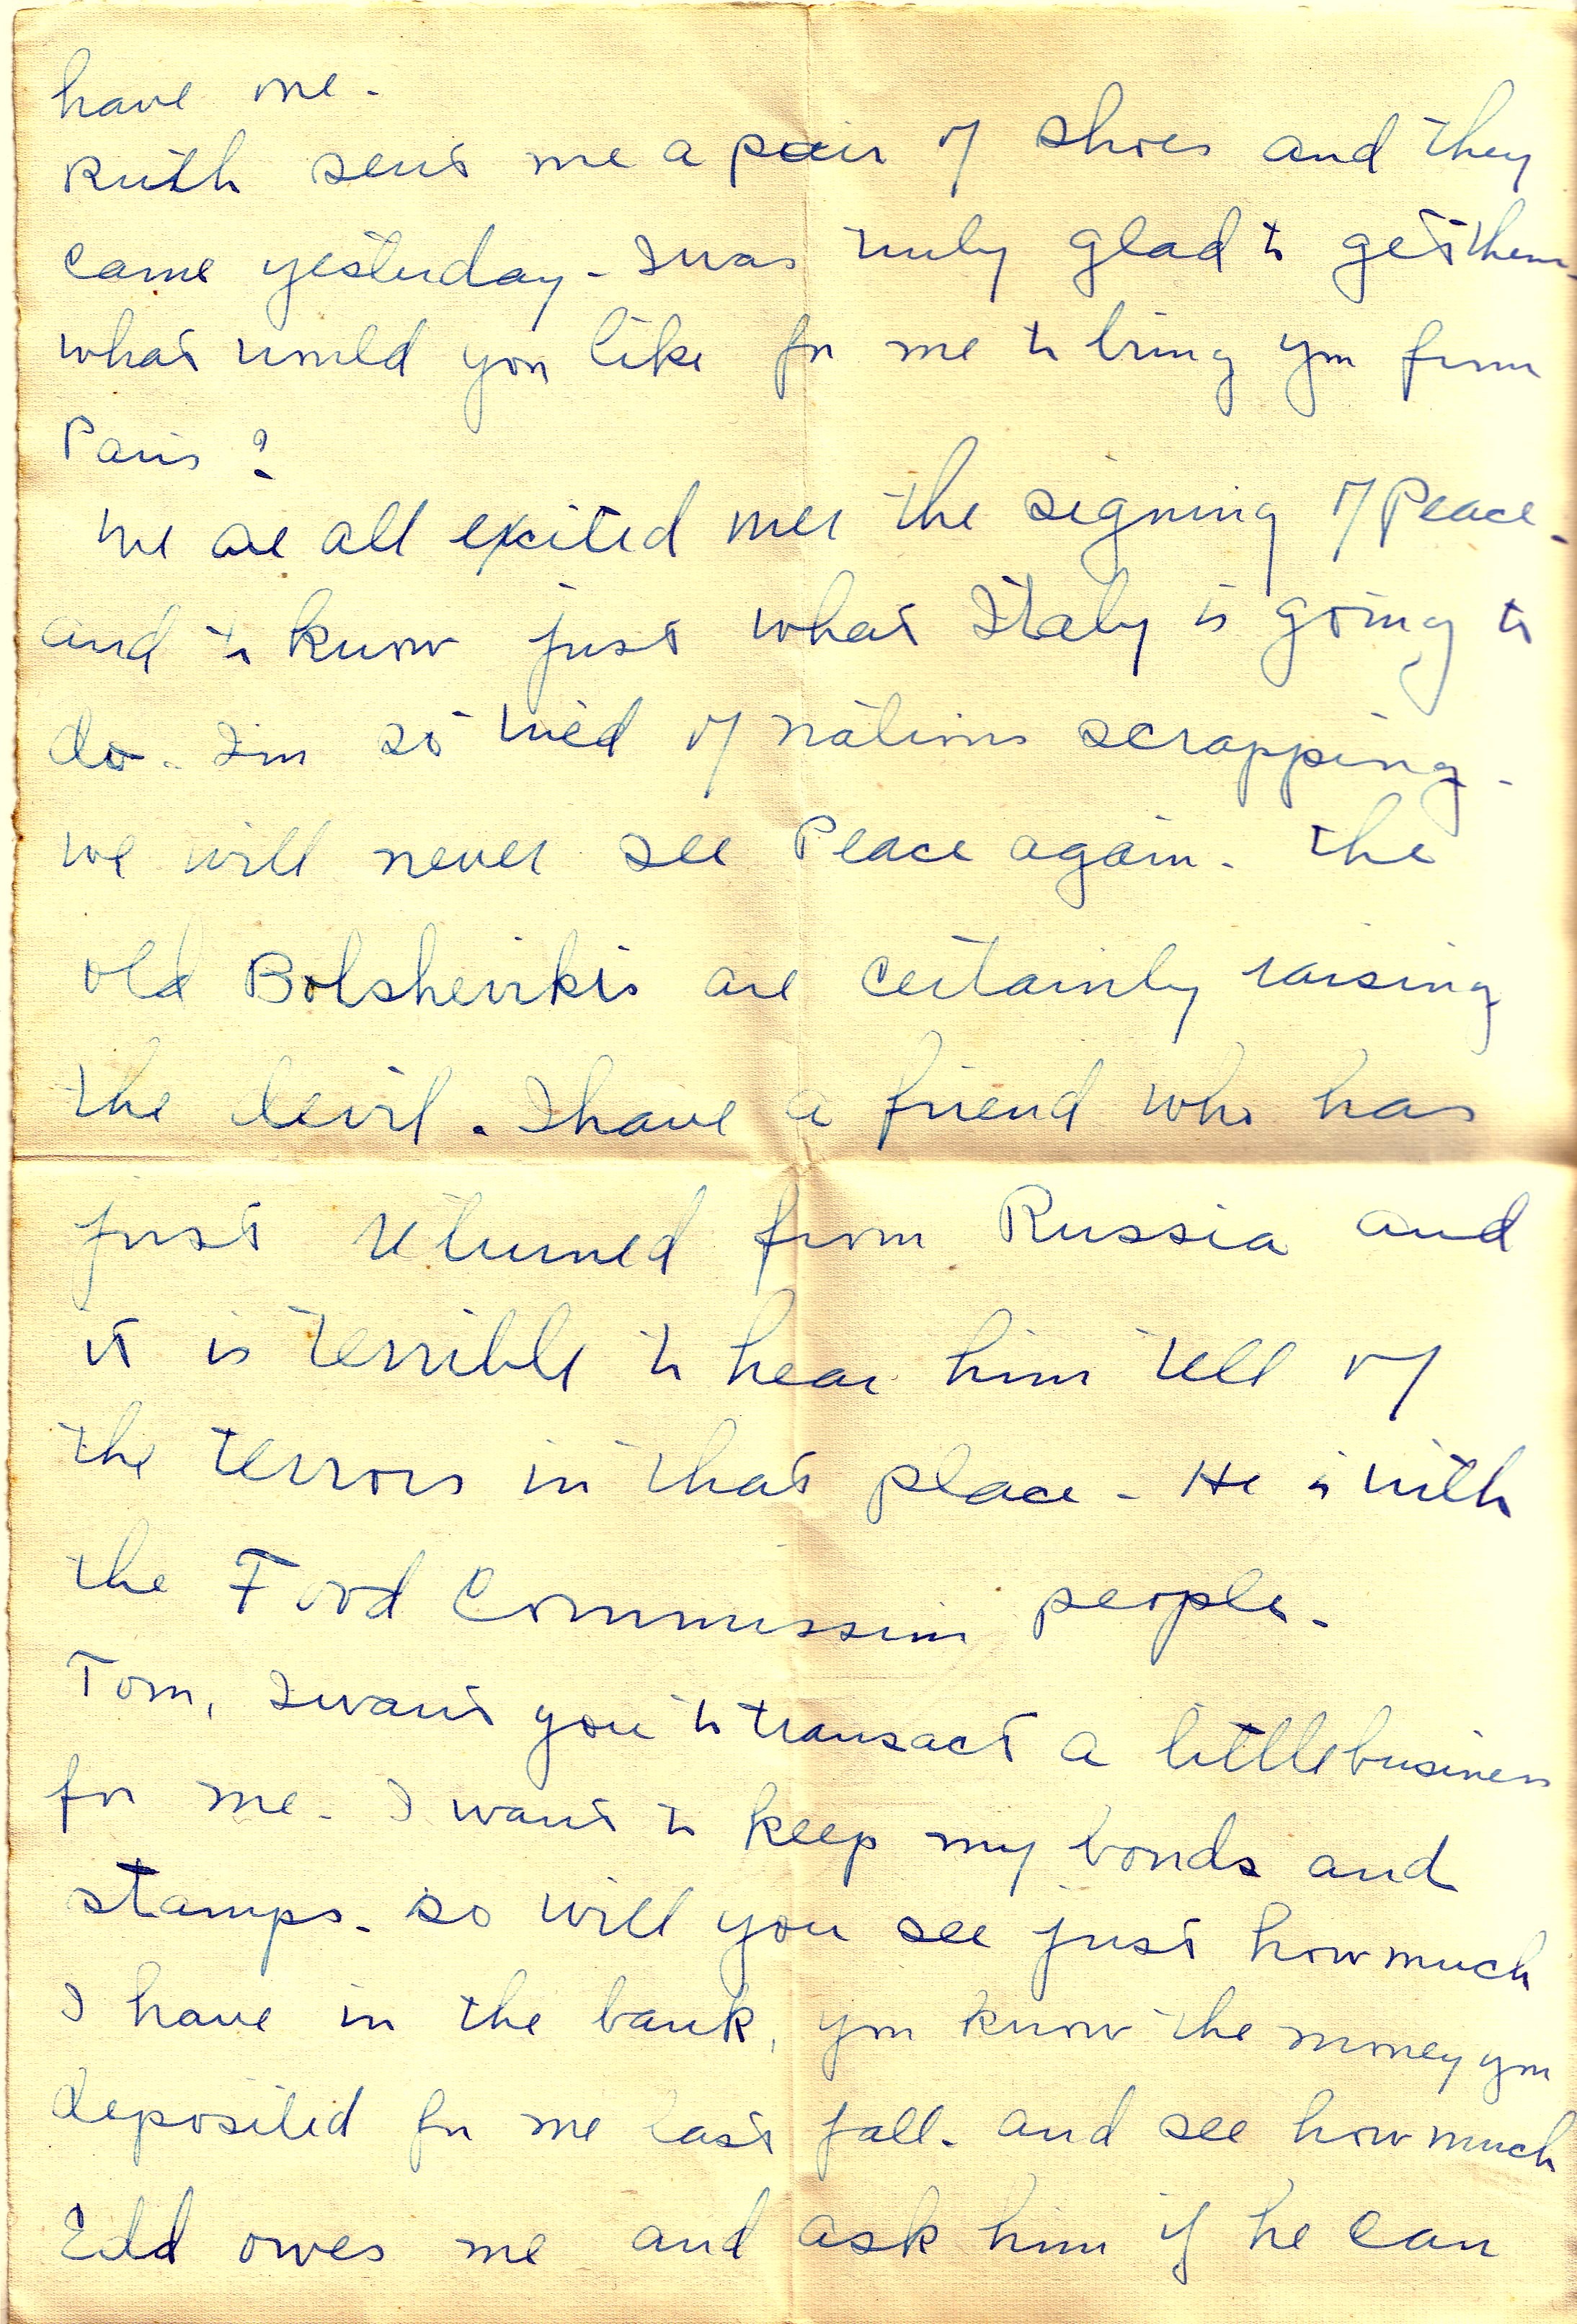 have one.
Ruth sent me a pair of shoes and they
came yesterday - I was truly glad to get them -
what would you like for me to bring you from
Paris?
We are all excited over the signing of Peace -
and to know just what Italy is going to
do. I'm so tired of nations scrapping -
we will never see Peace again - the
old Bolshevikis are certainly raising
the devil. I have a friend who has
just returned from Russia and
it is terrible to hear him tell of
the terrors in that place - He is with
the Food Commission people -
Tom, I want you to transact a little business
for me - I want to keep my bonds and
stamps - so will you see just how much
I have in the bank, you know the money you
deposited for me last fall - and see how much
Edd owes me and ask him if he can